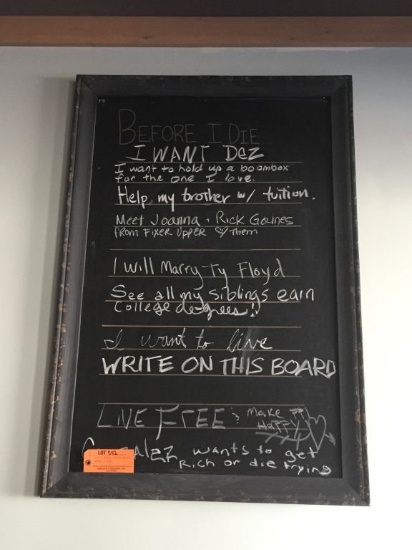 BEFORE I DIE
I WANT DEZ
I want to hold up a boombox
for the one I love.
Help my brother w/ tuition.
Meet Joanna + Rick Gaines
from Fixer Upper ♡ them
I will Marry Ty Floyd
See all my siblings earn
college degrees!
I want to live
WRITE ON THIS BOARD
LIVE FREE & Make PPL
HAPPY
wants to get
Rich or die trying
LOT